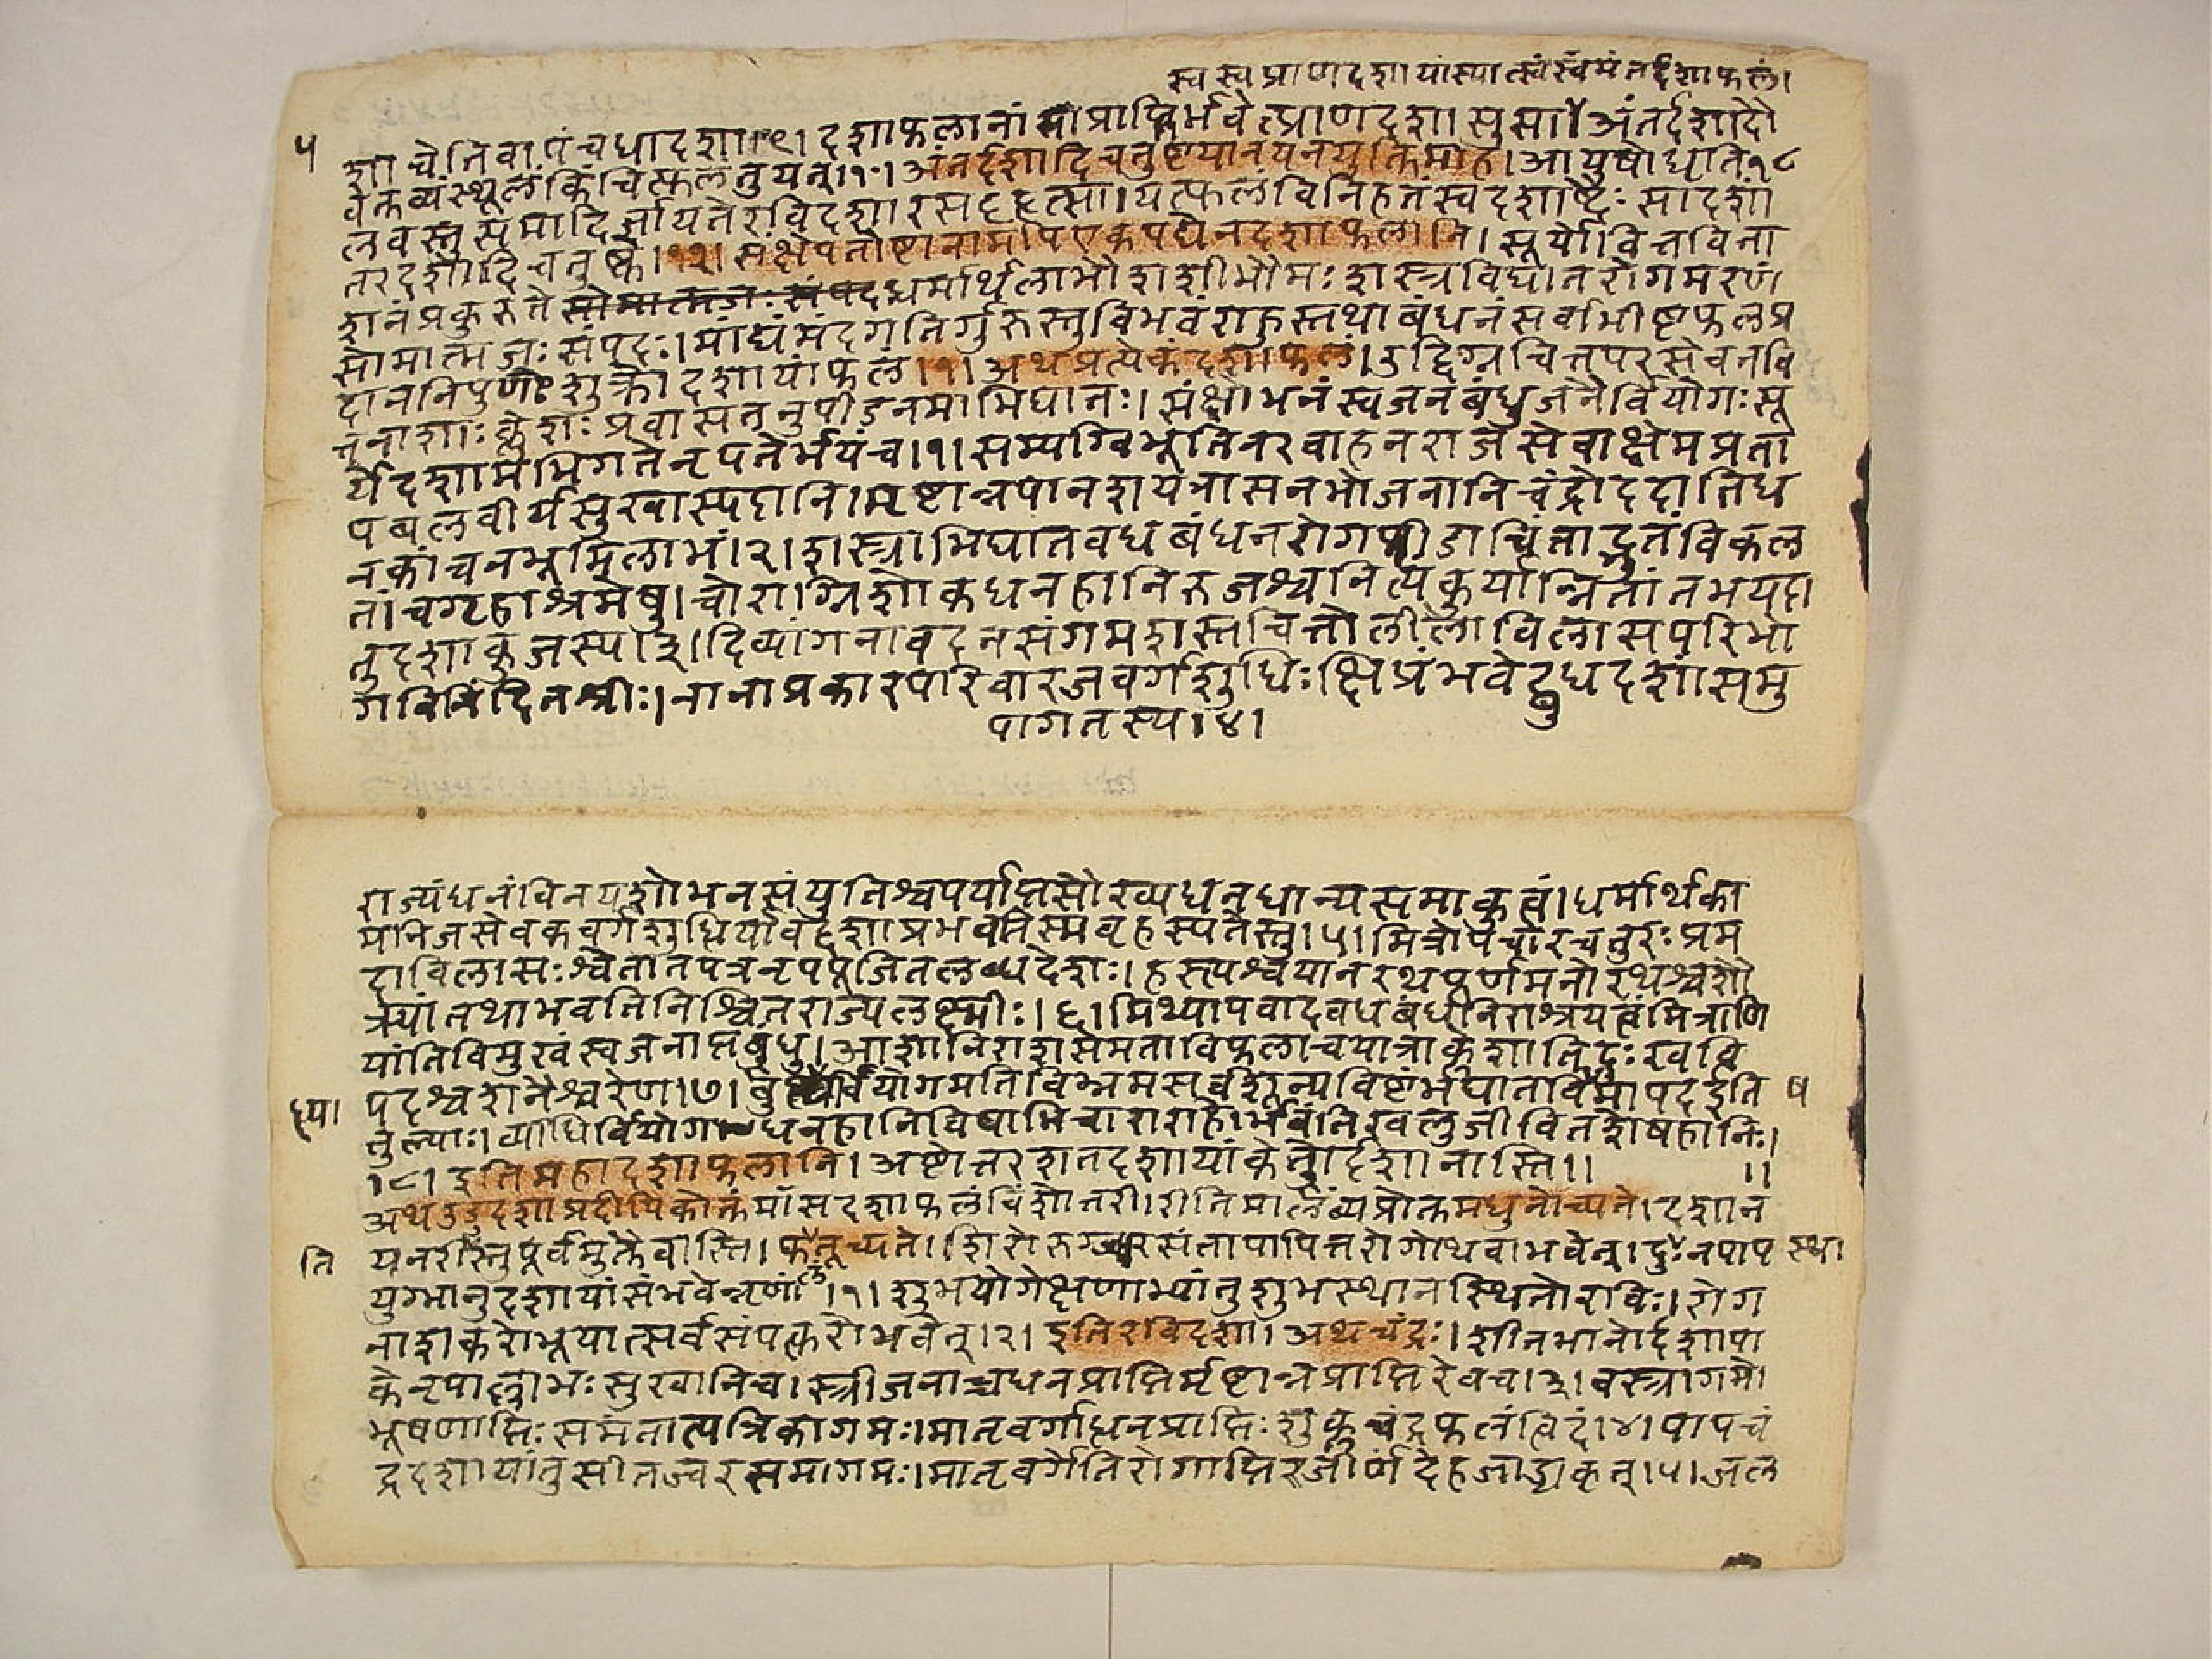 स्वस्वप्राणदशायांस्यात्स्वंस्वंमंतर्दशाफलं।
५
शाचेतिवापंचधादशा।९। दशाफलानांप्राप्तिर्भवेत्प्राणदशासुसा। अंतर्दशादौ
वक्तव्यंस्थूलंकिंचित्फलंतुयत्।१०। अंतर्दशादिचतुष्टयानयनयुक्तिमाह। आयुषोघति१८
लवस्तुसमादिर्जायतेरविदशारसहृत्सा। यत्फलंविनिहतंस्वदशाष्टैः सादशां
तरदशादिचतुष्के।११। संक्षेपतोष्टानामपिएकपद्येनदशाफलानि। सूर्योवित्तविना
शनंप्रकुरुते धर्मार्थलाभौशशीभौमः शस्त्रविघातरोगमरणं
सोमात्मजः संपदः। मांद्यंमंदगतिर्गुरुस्तुविभवंराहुस्तथाबंधनंसर्वाभीष्टफलप्र
दाननिपुणः शुक्रोदशायांफलं।१। अथप्रत्येकंदशाफलं। उद्विग्नचित्तपरसेवनवि
त्तनाशाः क्लेशः प्रवासतनुपीडनमाभिघातः। संक्षोभनंस्वजनबंधुजनैर्वियोगः सू
र्येदशामभिगतेनृपतेर्भयंच।१। सम्यग्विभूतिनरवाहनराजसेवाक्षेमप्रता
पबलवीर्यसुखास्पदानि। मृष्टान्नपानशयनासनभोजनानिचंद्रोददातिध
नकांचनभूमिलाभं।२। शस्त्राभिघातवधबंधनरोगपीडाचिंताद्भुतंविकल
तांचगृहाश्रमेषु। चोराग्निशोकधनहानिरुजश्चनित्यंकुर्यान्नितांतभयदा
तुदशाकुजस्य।३। दिव्यांगनावदनसंगमशस्तचित्तोलीलाविलासपरिभो
गविनिंदितश्रीः। नानाप्रकारपरिवारजवर्गशुधिः क्षिप्रंभवेद्बुधदशांसमु
पागतस्य।४।
राज्यंधनंविनयशोभनसंयुतिश्चपर्याप्तसौख्यधनधान्यसमाकुलत्वं। धर्मार्थका
मनिजसेवकवर्गशुधिर्यावद्दशाप्रभवतिस्मबृहस्पतेस्तु।५। मित्रोपचारचतुरः प्रम
दाविलासः श्वेतातपत्रनृपपूजितलब्धदेशः। हस्त्यश्वयानरथपूर्णमनोरथश्चशौ
क्र्यांतथाभवतिनिश्चितराज्यलक्ष्मीः।६। मिथ्यापवादवधबंधनिराश्रयत्वंमित्राणि
यांतिविमुखंस्वजनाप्तबंधु। आशानिराशसमताविफलाचयात्राकृशातिदुःखवि
पदश्चशनैश्चरेण।७। बुध्यर्वियोगमतिविभ्रमसर्वशून्यविष्टंभघातविमापदईति ष
ध्या।
तुल्याः। व्याधिर्वियोगधनहानिविषाभिचाराराहोर्भवंतिखलुजीवितशेषहानिः।
।८। इतिमहादशाफलानि। अष्टोत्तरशतदशायांकेतोर्दशानास्ति।। ।।
अथउडुदशाप्रदीपिकोक्तंमांसदशाफलंविंशोत्तरी। रीतिमालंब्यप्रोक्तमधुनोच्यते। दशान
ति
यनरीस्तुपूर्वमुक्तैवास्ति। फलंतूच्यते। शिरोरुग्ज्वरसंतापापित्तरोगोथवाभवेत्। दुःनपाप स्था।
युग्भानुदशायांसंभवेन्नृणां।१। शुभयोगेक्षणाभ्यांतुशुभस्थानस्थितोरविः। रोग
नाशकरोभूयात्सर्वसंपत्करोभवेत्।२। इतिरविदशा। अथचंद्रः। शीतभानोर्दशापा
केनृपाल्लाभः सुखानिच। स्त्रीजनाच्चधनप्राप्तिर्मृष्टान्नप्राप्तिरेवच।३। वस्त्रागमो
भूषणाप्तिः समंतात्पत्रिकागमः। मातृवर्गाधनप्राप्तिः शुक्लचंद्रफलंत्विदं।४। पापचं
द्रदशायांतुसीतज्वरसमागमः। मातृवर्गेतिरोगाप्तिरजीर्णदेहजाड्यकृत्।५। जल